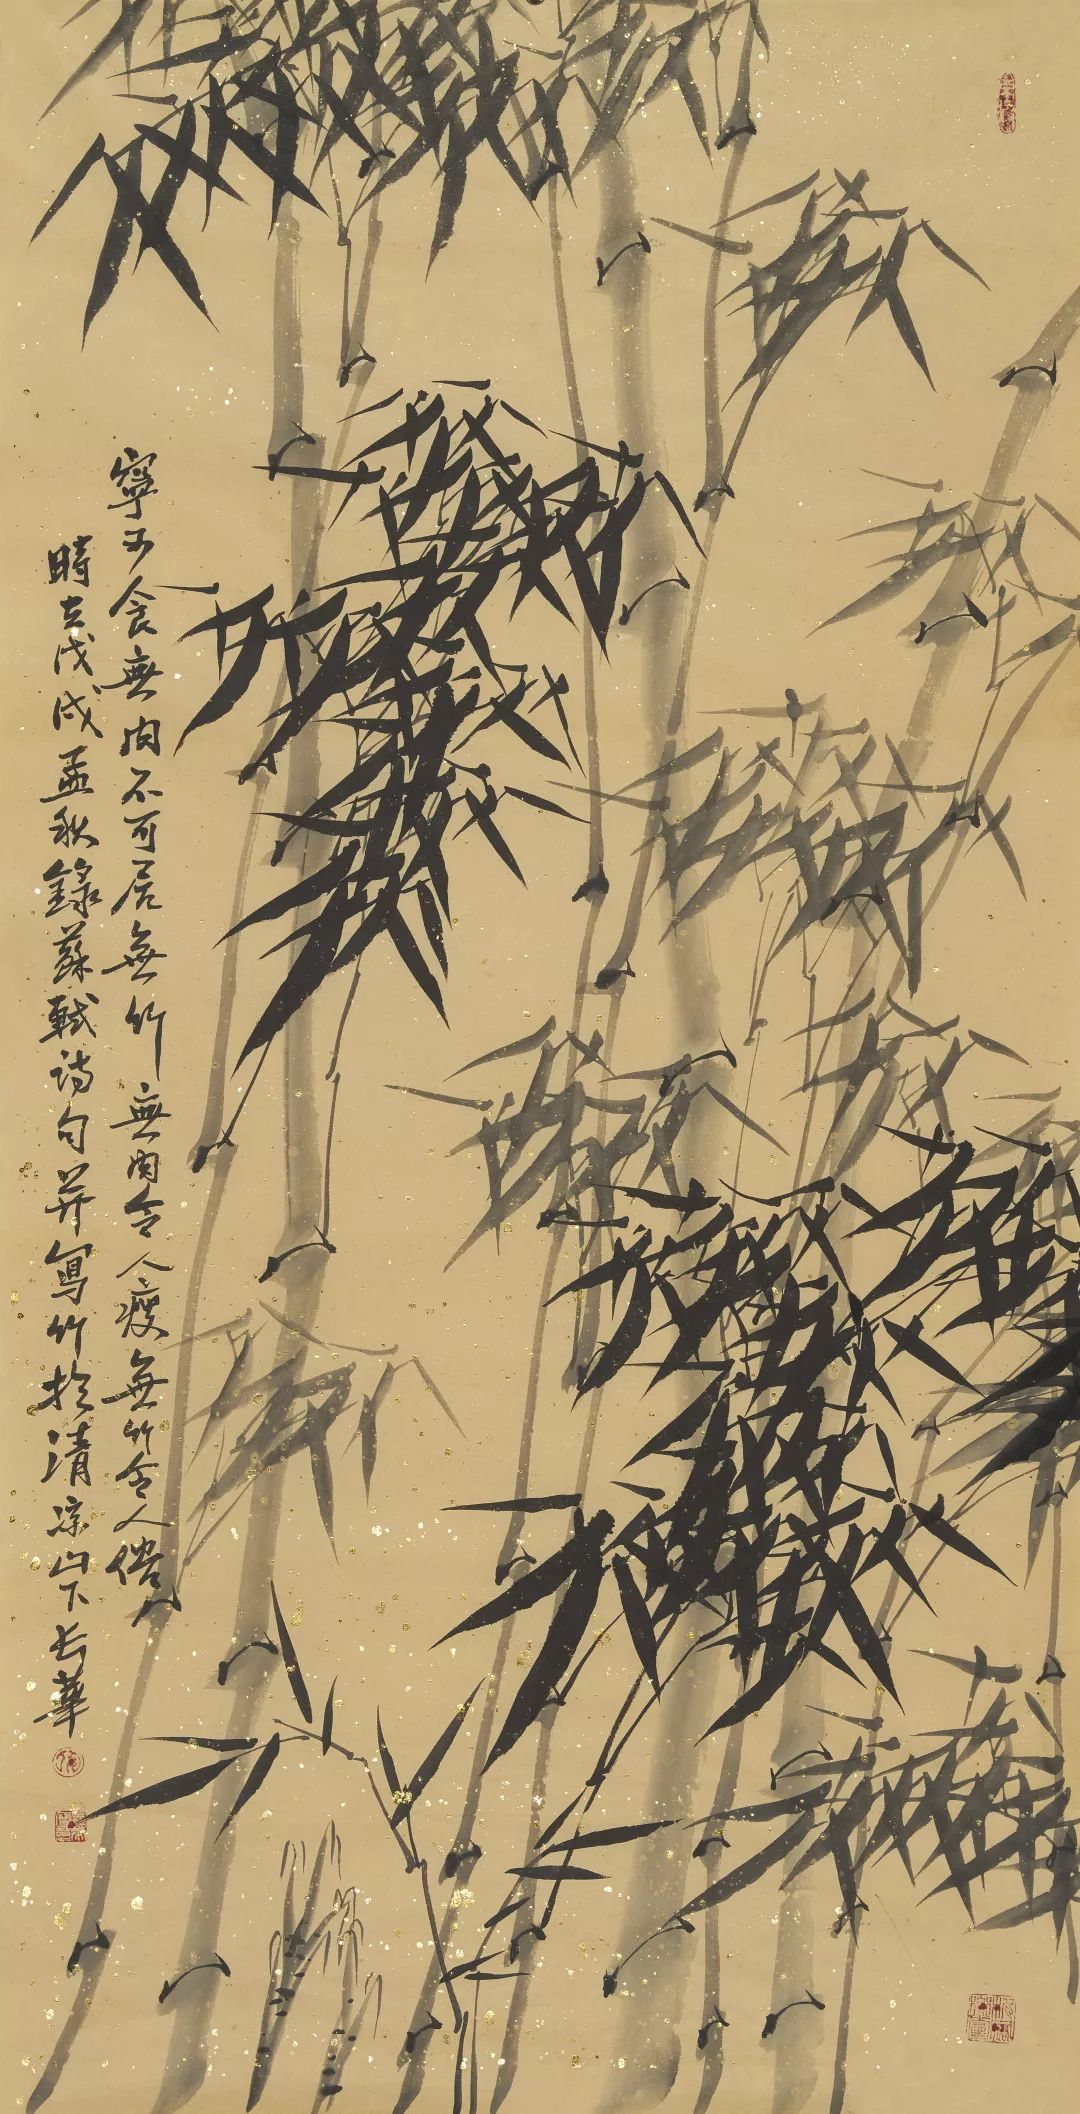 寧可食無肉不可居無竹無肉令人瘦無竹令人俗
時在戊戌孟秋錄蘇軾詩句并寫竹於清凉山下長華